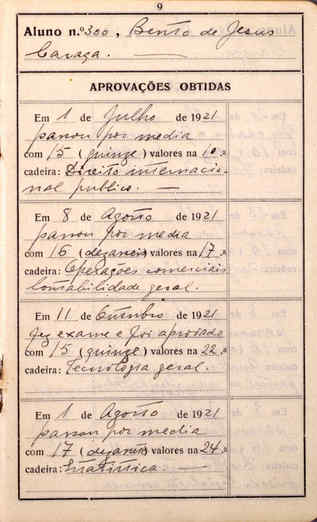 9
Aluno n.º 300, Bento de Jesus
Caraça.
APROVAÇÕES OBTIDAS
Em 1 de Julho de 1921
passou por media
com 15 (quinze) valores na 10.ª
cadeira: Direito internacio-
nal publico. —
Em 8 de Agosto de 1921
passou por media
com 16 (dezaseis) valores na 17.ª
cadeira: Operações comerciais
Contabilidade geral.
Em 11 de Outubro de 1921
fez exame e foi aprovado
com 15 (quinze) valores na 22.ª
cadeira: Tecnologia geral.
Em 1 de Agosto de 1921
passou por media
com 17 (dezasete) valores na 24.ª
cadeira: Estatistica. —